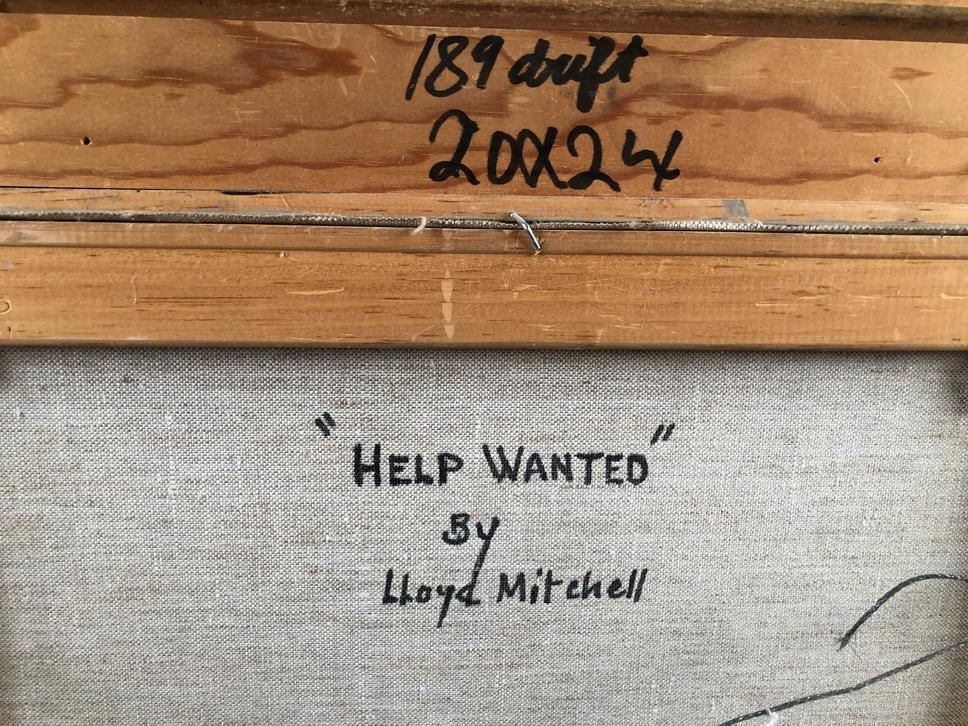 189 drift
20X24
"HELP WANTED"
By
Lloyd Mitchell